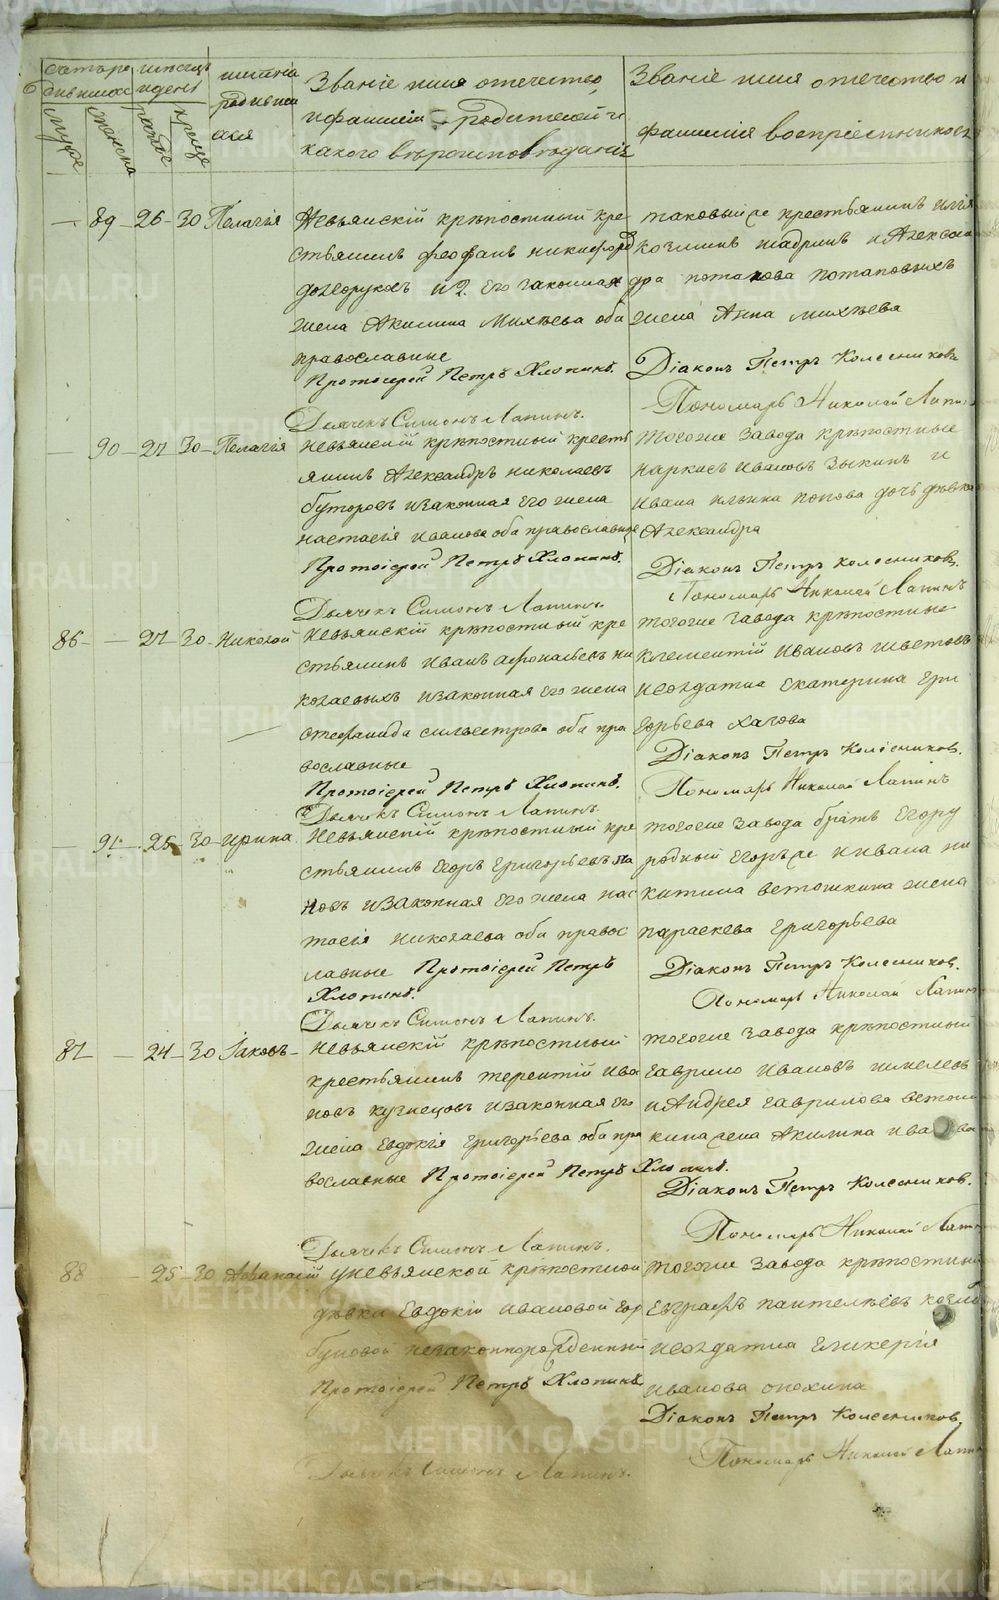 Званіе имя отечество
и фамилія родителей и
какого вѣроисповѣданія
Званіе имя отечество и
фамилія воспріемниковъ
— 89 26 30 Пелагія
Невьянскій крѣпостный кре
стьянинъ Феофанъ Никифоровъ
и 2. его законная
жена Акилина Михѣева оба
православные
Протоіерей Петръ Хлопинъ.
Дьячекъ Симонъ Лапинъ.
таковый же крестьянинъ Илія
жена Анна Михѣева
Діаконъ Петръ Колесниковъ
Пономарь Николай Лапинъ
90 27 30 Пелагія
Невьянскій крѣпостный кресть
янинъ Александръ Николаевъ
Буторовъ и законная его жена
Настасія Иванова оба православные
Протоіерей Петръ Хлопинъ.
Дьячекъ Симонъ Лапинъ.
Тогоже завода крѣпостные
Наркисъ Ивановъ Зыкинъ и
Ивана Ильина Попова дочь дѣвка
Александра
Діаконъ Петръ Колесниковъ.
Пономарь Николай Лапинъ
86 — 27 30 Николай
Невьянскій крѣпостный кре
стьянинъ Иванъ Афонасьевъ Ни
колаевыхъ и законная его жена
Стефанида Сильвестрова оба пра
вославные
Протоіерей Петръ Хлопинъ.
Дьячекъ Симонъ Лапинъ.
Тогоже завода крѣпостные
Климентій Ивановъ
и солдатка Екатерина Гри
горьева
Діаконъ Петръ Колесниковъ.
Пономарь Николай Лапинъ
91 25 30 Ирина
Невьянскій крѣпостный кре
стьянинъ Егоръ Григорьевъ Па
новъ и законная его жена Нас
тасія Николаева оба правос
лавные Протоіерей Петръ
Хлопинъ.
Дьячекъ Симонъ Лапинъ.
Тогоже завода братъ Егору
родный Егоръ же и Ивана Ни
китина Ветошкина жена
Параскева Григорьева
Діаконъ Петръ Колесниковъ.
Пономарь Николай Лапинъ
87 — 24 30 Іаковъ
Невьянскій крѣпостный
крестьянинъ Терентій Ива
новъ Кузнецовъ и законная его
жена Евдокія Григорьева оба пра
вославные Протоіерей Петръ Хлопинъ.
Дьячекъ Симонъ Лапинъ.
Тогоже завода крѣпостный
Гаврило Ивановъ
и Андрея Гаврилова Ветош
кина жена Акилина
Діаконъ Петръ Колесниковъ.
Пономарь Николай Лапинъ
88 — 25 30 Афанасій
У Невьянской крѣпостной
дѣвки Евдокіи Ивановой Гор
буновой незаконнорожденный
Протоіерей Петръ Хлопинъ
Дьячекъ Симонъ Лапинъ.
Тогоже завода крѣпостный
Евграфъ Пантелѣевъ
и солдатка Гликерія
Иванова
Діаконъ Петръ Колесниковъ.
Пономарь Николай Лапинъ
METRIKI.GASO-URAL.RU